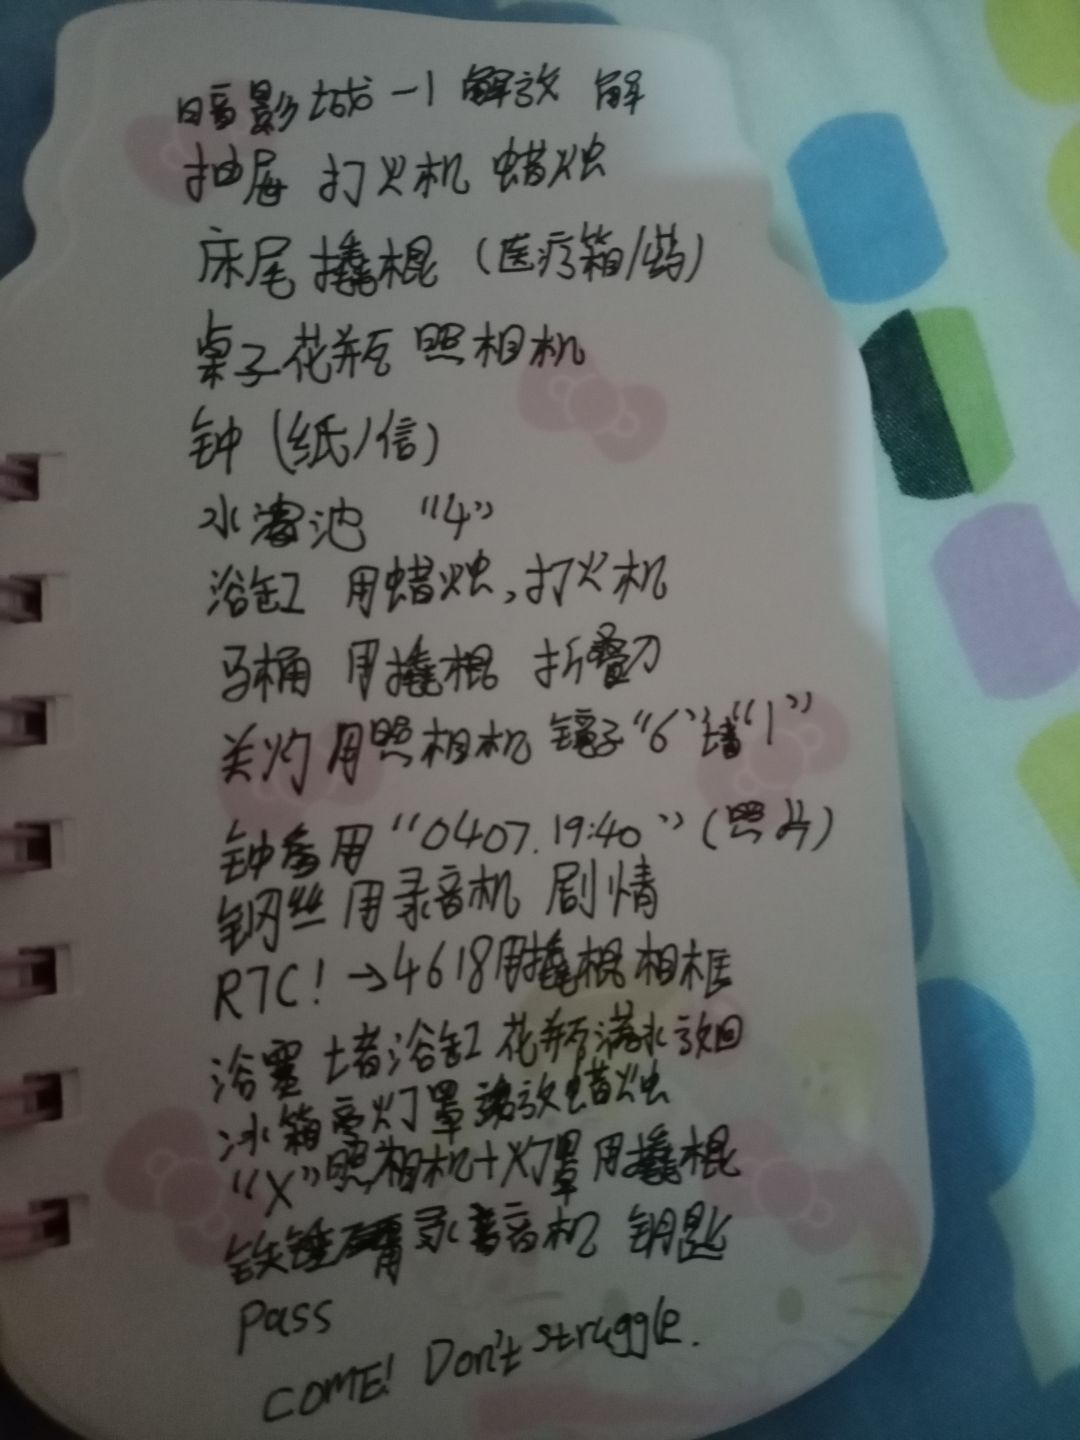 暗影城-1 解放 解
抽屉 打火机 蜡烛
床尾 撬棍 (医疗箱/药)
桌子花瓶 照相机
钟 (纸/信)
水池 "4"
浴缸 用蜡烛,打火机
马桶 用撬棍 折叠刀
关灯 用照相机 镜子"6"墙"1"
钟 用"0407.19:40"(照片)
钢丝 用录音机 剧情
RTC!→4618用撬棍 相框
浴室 堵浴缸 花瓶满水放回
冰箱 灯罩 放蜡烛
"X"照相机+灯罩 用撬棍
铁锤 录音机 钥匙
Pass
COME! Don't struggle.